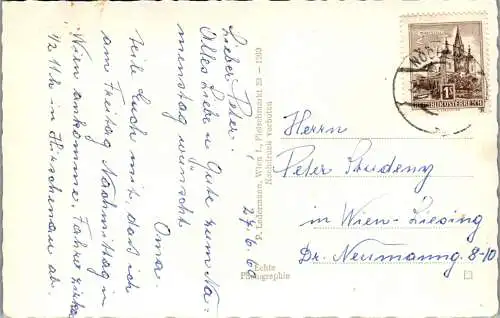 Lieber Peter!
Alles Liebe u. Gute zum Na-
menstag wünscht
Oma.
teile Euch mit, daß ich
am Freitag Nachmittag in
Wien ankomme. Fahre
½ 11h in Hirschenau ab.
27/6.60
P. Ledermann, Wien I., Fleischmarkt 23 — 1960
Nachdruck verboten
Echte
Photographie
1S
REPUBLIK ÖSTERREICH
Herrn
Peter Studeny
in Wien-Liesing
Dr. Neumanng. 8-10